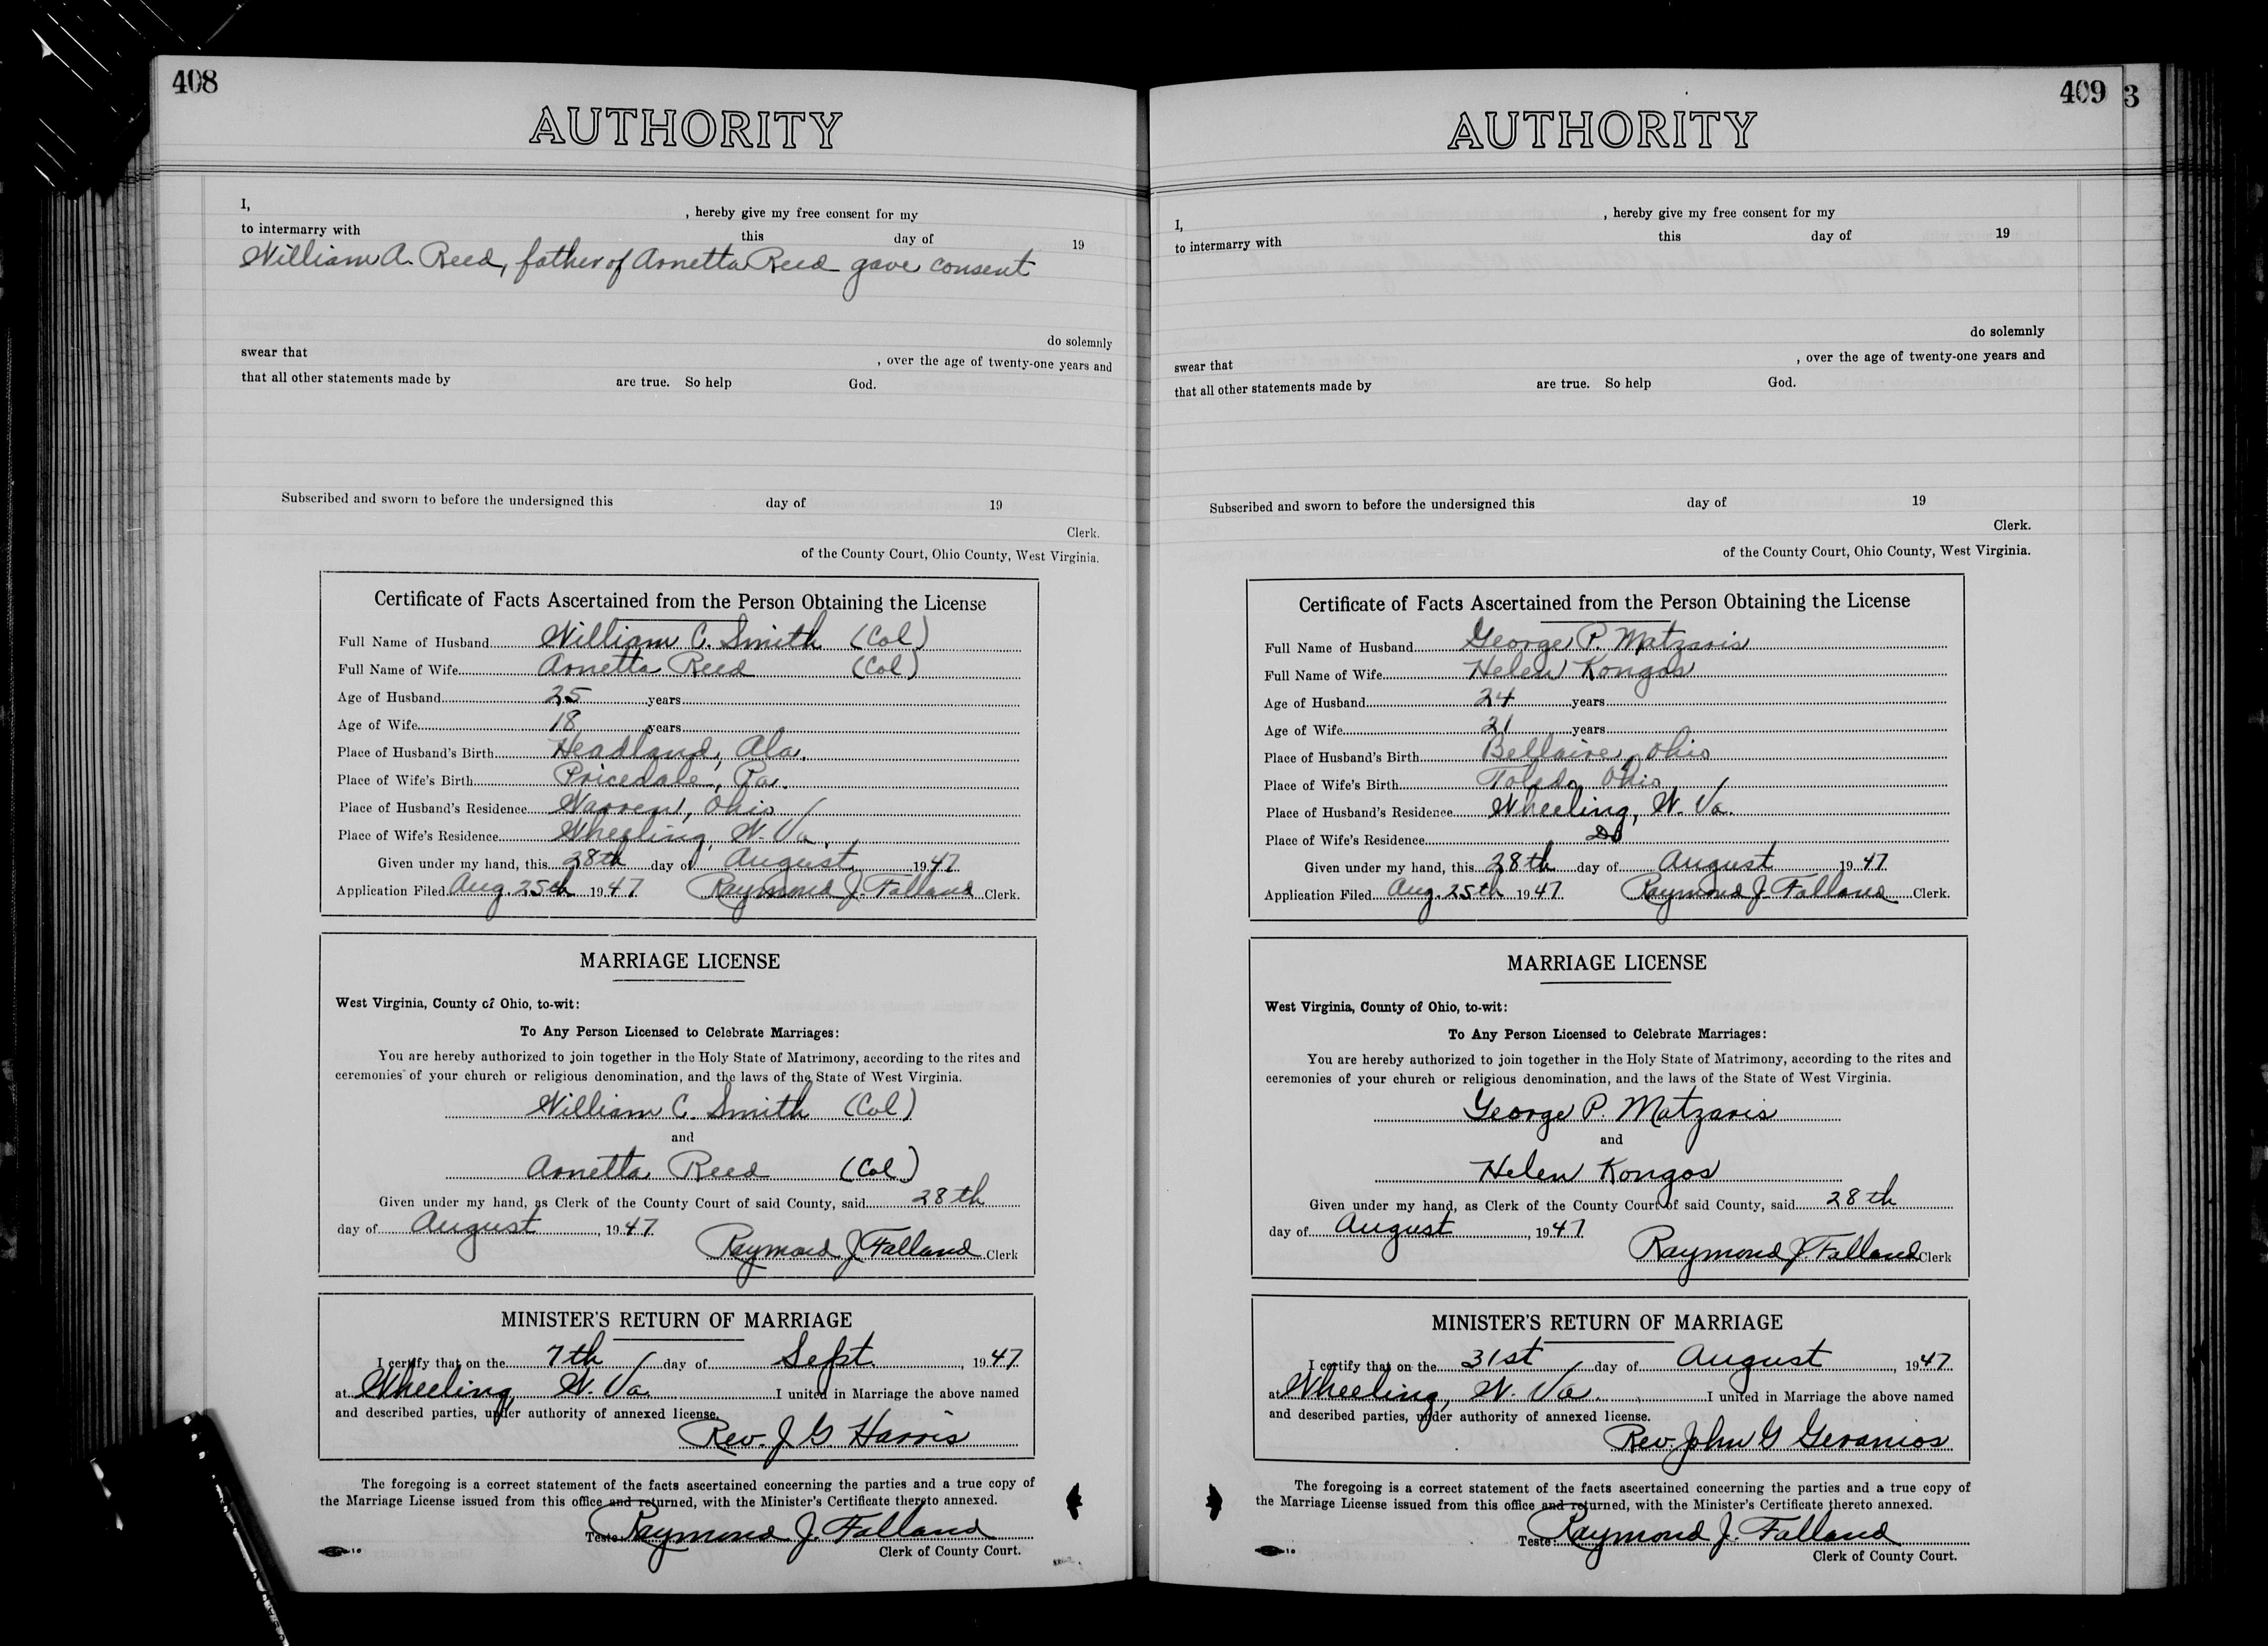 408
AUTHORITY
I, , hereby give my free consent for my
to intermarry with this day of 19
William A. Reed, father of Arnetta Reed gave consent
do solemnly
swear that , over the age of twenty-one years and
that all other statements made by are true. So help God.
Subscribed and sworn to before the undersigned this day of 19
Clerk.
of the County Court, Ohio County, West Virginia.
Certificate of Facts Ascertained from the Person Obtaining the License
Full Name of Husband William C. Smith (Col)
Full Name of Wife Arnetta Reed (Col)
Age of Husband 25 years
Age of Wife 18 years
Place of Husband's Birth Headland, Ala.
Place of Wife's Birth Pricedale, Pa.
Place of Husband's Residence Warren, Ohio
Place of Wife's Residence Wheeling, W. Va.
Given under my hand, this 28th day of August 1947
Application Filed Aug. 25th 1947 Raymond J. Falland Clerk.
MARRIAGE LICENSE
West Virginia, County of Ohio, to-wit:
To Any Person Licensed to Celebrate Marriages:
You are hereby authorized to join together in the Holy State of Matrimony, according to the rites and
ceremonies of your church or religious denomination, and the laws of the State of West Virginia.
William C. Smith (Col)
and
Arnetta Reed (Col)
Given under my hand, as Clerk of the County Court of said County, said 28th
day of August, 1947. Raymond J. Falland Clerk
MINISTER'S RETURN OF MARRIAGE
I certify that on the 7th day of Sept., 1947
at Wheeling, W. Va. I united in Marriage the above named
and described parties, under authority of annexed license.
Rev. J G. Harris
The foregoing is a correct statement of the facts ascertained concerning the parties and a true copy of
the Marriage License issued from this office and returned, with the Minister's Certificate thereto annexed.
Teste Raymond J. Falland
Clerk of County Court.
409
3
AUTHORITY
I, , hereby give my free consent for my
to intermarry with this day of 19
do solemnly
swear that , over the age of twenty-one years and
that all other statements made by are true. So help God.
Subscribed and sworn to before the undersigned this day of 19
Clerk.
of the County Court, Ohio County, West Virginia.
Certificate of Facts Ascertained from the Person Obtaining the License
Full Name of Husband George P. Matzaris
Full Name of Wife Helen Kongos
Age of Husband 24 years
Age of Wife 21 years
Place of Husband's Birth Bellaire, Ohio
Place of Wife's Birth Toledo, Ohio
Place of Husband's Residence Wheeling, W. Va.
Place of Wife's Residence Do
Given under my hand, this 28th day of August 1947
Application Filed Aug. 25th 1947. Raymond J. Falland Clerk.
MARRIAGE LICENSE
West Virginia, County of Ohio, to-wit:
To Any Person Licensed to Celebrate Marriages:
You are hereby authorized to join together in the Holy State of Matrimony, according to the rites and
ceremonies of your church or religious denomination, and the laws of the State of West Virginia.
George P. Matzaris
and
Helen Kongos
Given under my hand, as Clerk of the County Court of said County, said 28th
day of August, 1947 Raymond J. Falland Clerk
MINISTER'S RETURN OF MARRIAGE
I certify that on the 31st day of August, 1947
at Wheeling, W. Va. I united in Marriage the above named
and described parties, under authority of annexed license.
Rev. John G Geranios
The foregoing is a correct statement of the facts ascertained concerning the parties and a true copy of
the Marriage License issued from this office and returned, with the Minister's Certificate thereto annexed.
Teste: Raymond J. Falland
Clerk of County Court.